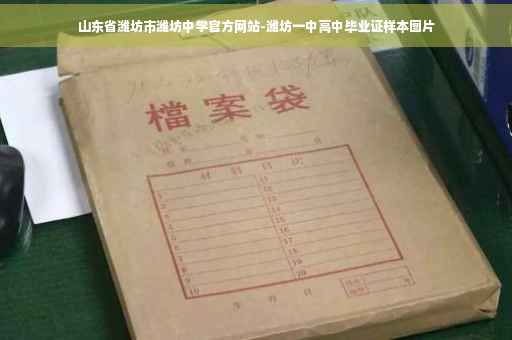 山东省潍坊市潍坊中学官方网站-潍坊一中高中毕业证样本图片
檔案袋
材料目次
1 11
2 12
3 13
4 14
5 15
6 16
7 17
8 18
9 19
10 20
年 月 日